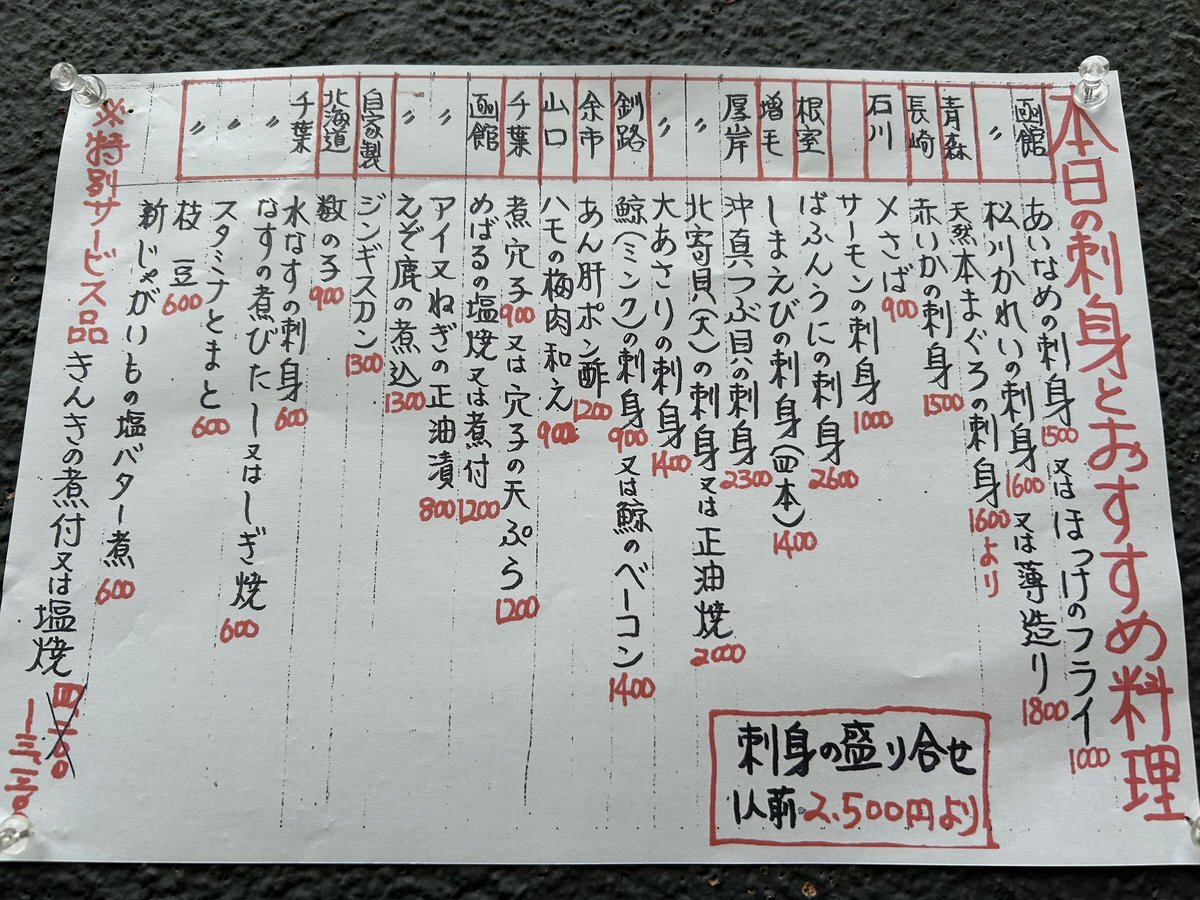 本日の刺身とおすすめ料理
函館 あいなめの刺身 1500 又は ほっけのフライ 1000
〃 松川かれいの刺身 1600 又は薄造り 1800
青森 天然本まぐろの刺身 1600より
長崎 赤いかの刺身 1500
石川 〆さば 900
サーモンの刺身 1000
根室 ばふんうにの刺身 2600
増毛 しまえびの刺身(四本) 1400
厚岸 沖真つぶ貝の刺身 2300
〃 北寄貝(大)の刺身又は正油焼 2000
〃 大あさりの刺身 1400
釧路 鯨(ミンク)の刺身 900 又は鯨のベーコン 1400
余市 あん肝ポン酢 1200
山口 ハモの梅肉和え 900
千葉 煮穴子 900 又は穴子の天ぷら 1200
函館 めばるの塩焼又は煮付 1200
〃 アイヌねぎの正油漬 800
〃 えぞ鹿の煮込 1300
自家製 ジンギスカン 1300
北海道 数の子 900
千葉 水なすの刺身 600
〃 なすの煮びたし又はしぎ焼 600
〃 スタミナとまと 600
〃 枝豆 600
新じゃがいもの塩バター煮 600
※特別サービス品 きんきの煮付又は塩焼
刺身の盛り合せ
1人前 2.500円より